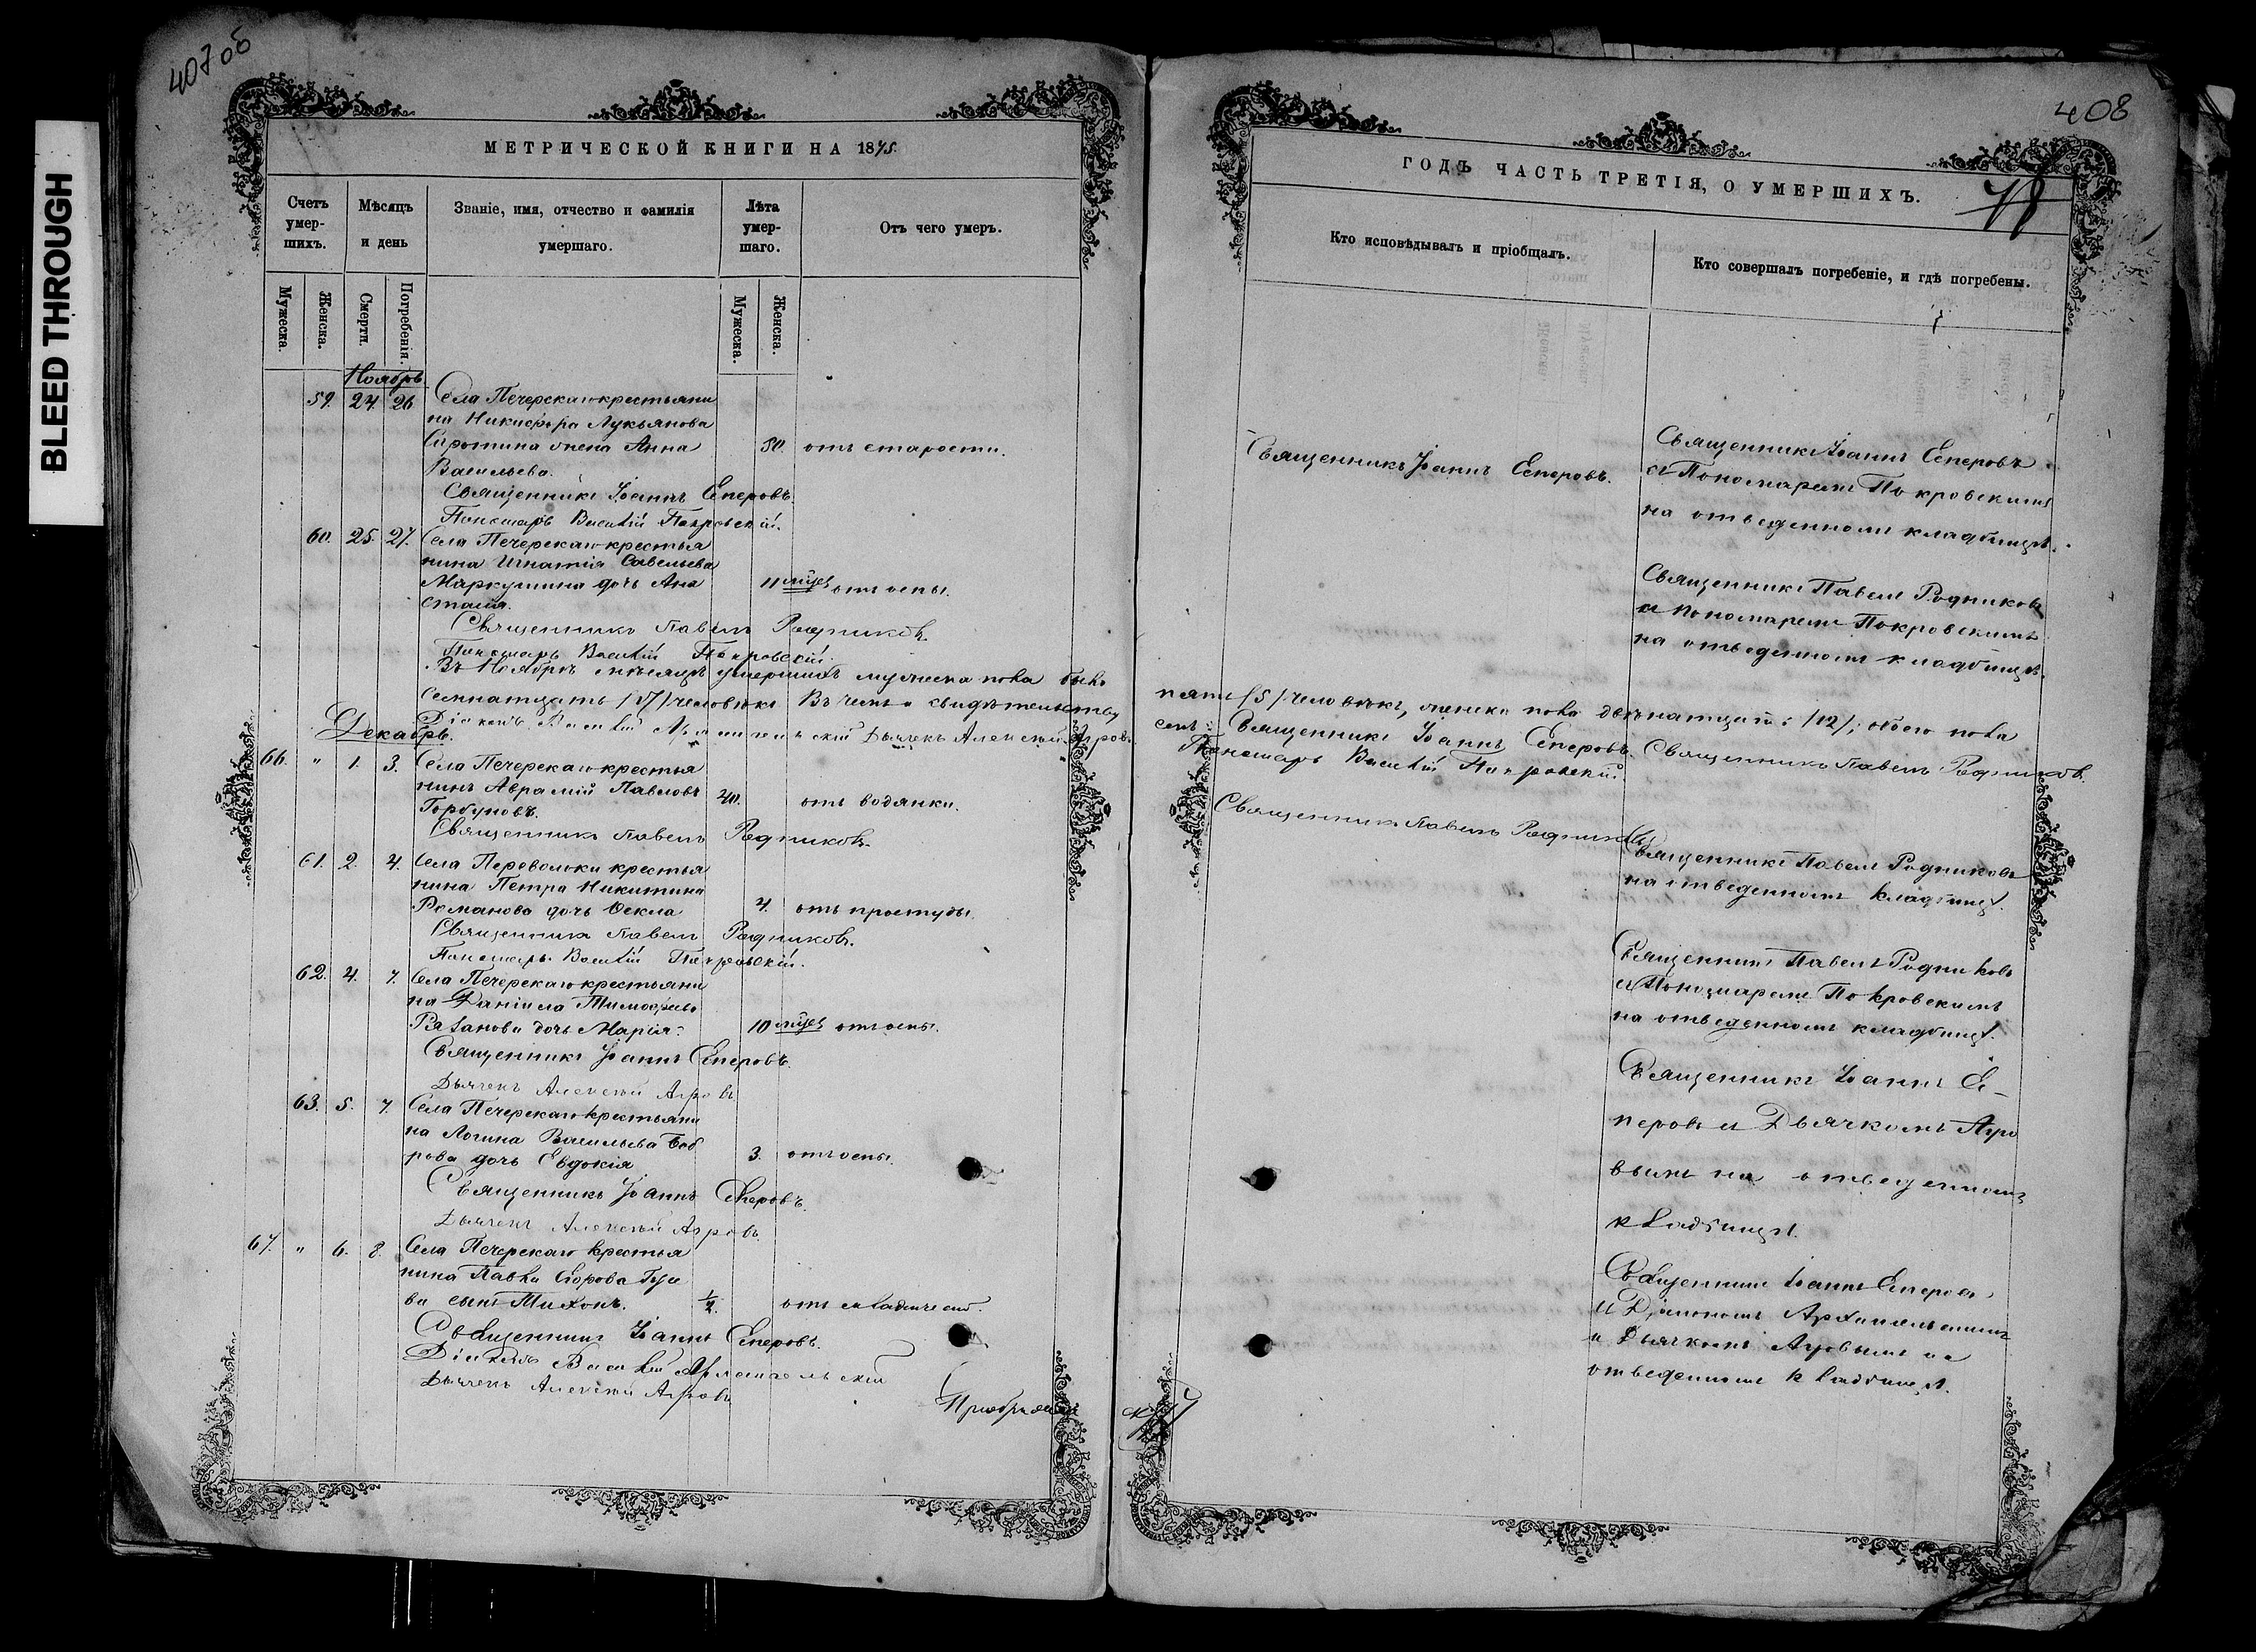 407 об
BLEED THROUGH
МЕТРИЧЕСКОЙ КНИГИ НА 1875.
Счетъ умершихъ.
Мѣсяцъ и день
Званіе, имя, отчество и фамилія умершаго.
Лѣта умершаго.
Отъ чего умеръ.
Мужеска.
Женска.
Смерти.
Погребенія.
Мужеска.
Женска.
Ноябрь
59. 24. 26 Села Печерскаго крестьяни
на Никифора Лукьянова
Сиротина жена Анна 80. отъ старости.
Васильева.
Священникъ Іоаннъ Еперовъ.
Пономарь Василій Покровскій.
60. 25. 27. Села Печерскаго крестья
нина Игнатія Савельева
Маркушина дочь Ана 11 мѣсе отъ оспы.
стасія.
Священникъ Павелъ Родниковъ.
Пономарь Василій Покровскій.
Въ Ноябрѣ мѣсяцѣ умершихъ мужеска пола было
семнатцать /17/ человѣкъ. Въ чемъ и свидѣтельству
Діаконъ Василій Архангельскій Дьячекъ Алексѣй Агровъ
Декабрь.
66. " 1. 3. Села Печерскаго крестья
нинъ Аврамій Павловъ 40. отъ водянки.
Горбуновъ.
Священникъ Павелъ Родниковъ.
61. 2. 4. Села Переволоки крестья
нина Петра Никитина
Романова дочь Ѳекла 4. отъ простуды.
Священникъ Павелъ Родниковъ.
Пономарь Василій Покровскій.
62. 4. 7. Села Печерскаго крестьяни
на Даніила Тимоѳѣева
дочь Марія 10 мѣсе отъ оспы.
Священникъ Іоаннъ Еперовъ.
Дьячекъ Алексѣй Агровъ
63. 5. 7. Села Печерскаго крестьяни
на Логина Васильева Боб
рова дочь Евдокія 3. отъ оспы.
Священникъ Іоаннъ Еперовъ.
Дьячекъ Алексѣй Агровъ.
67. " 6. 8. Села Печерскаго крестья
нина Павла Егорова Гусе
ва сынъ Тихонъ. 1/2. отъ младенческой.
Священникъ Іоаннъ Еперовъ.
Діаконъ Василій Архангельскій
Дьячекъ Алексѣй Агровъ
408
ГОДЪ ЧАСТЬ ТРЕТІЯ, О УМЕРШИХЪ.
Кто исповѣдывалъ и пріобщалъ.
Кто совершалъ погребеніе, и гдѣ погребены.
Священникъ Іоаннъ Еперовъ.
Священникъ Іоаннъ Еперовъ
съ Пономаремъ Покровскимъ
на отведенномъ кладбищѣ.
Священникъ Павелъ Родниковъ
съ Пономаремъ Покровскимъ
на отведенномъ кладбищѣ.
пять /5/ человѣкъ, женска пола двѣнатцать /12/; обоего пола
емъ: Священникъ Іоаннъ Еперовъ. Священникъ Павелъ Родниковъ.
Пономарь Василій Покровскій.
Священникъ Павелъ Родниковъ
Священникъ Павелъ Родниковъ
на отведенномъ кладбищѣ.
Священникъ Павелъ Родниковъ
съ Пономаремъ Покровскимъ
на отведенномъ кладбищѣ.
Священникъ Іоаннъ Е-
перовъ и Дьячкомъ Агро
вымъ на отведенномъ
кладбищѣ.
Священникъ Іоаннъ Еперовъ
съ Діакономъ Архангельскимъ
и Дьячкомъ Агровымъ на
отведенномъ кладбищѣ.